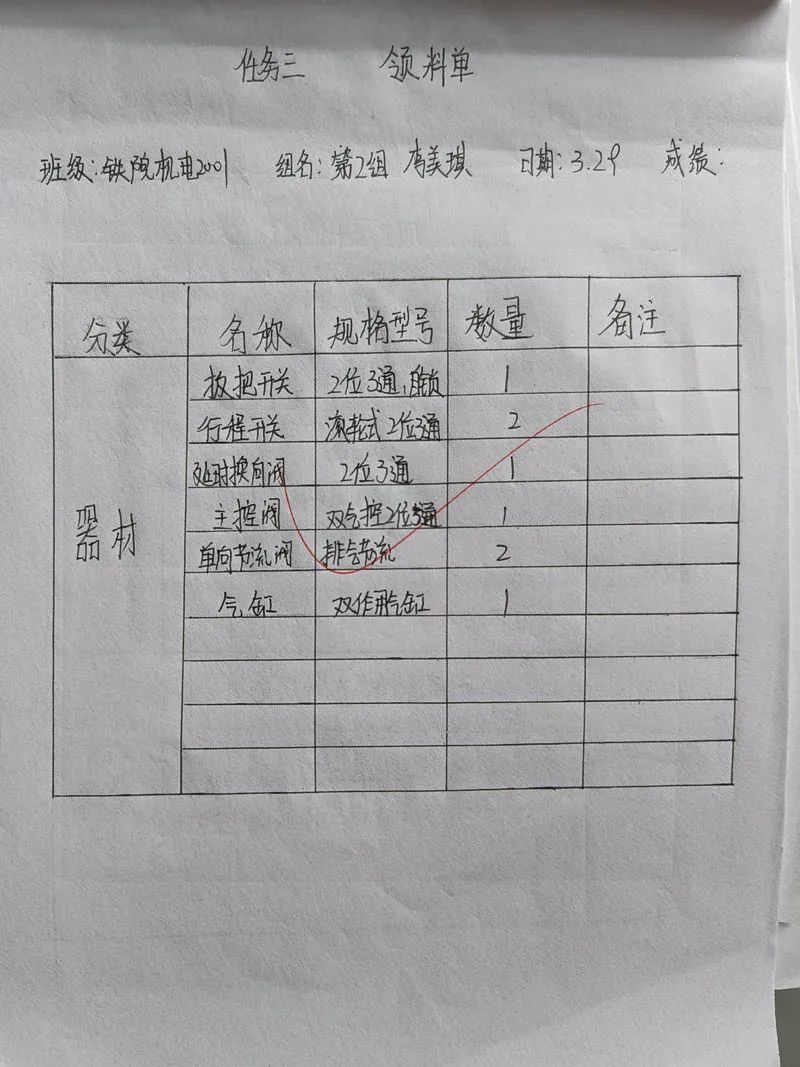 任务三 领料单
班级:铁院机电2001 组名:第2组 李美琪 日期:3.29 成绩:
分类 名称 规格型号 数量 备注
器材
扳把开关 2位3通,自锁 1
行程开关 滚轮式2位3通 2
延时换向阀 2位3通 1
主控阀 双气控2位5通 1
单向节流阀 排气节流 2
气缸 双作用气缸 1